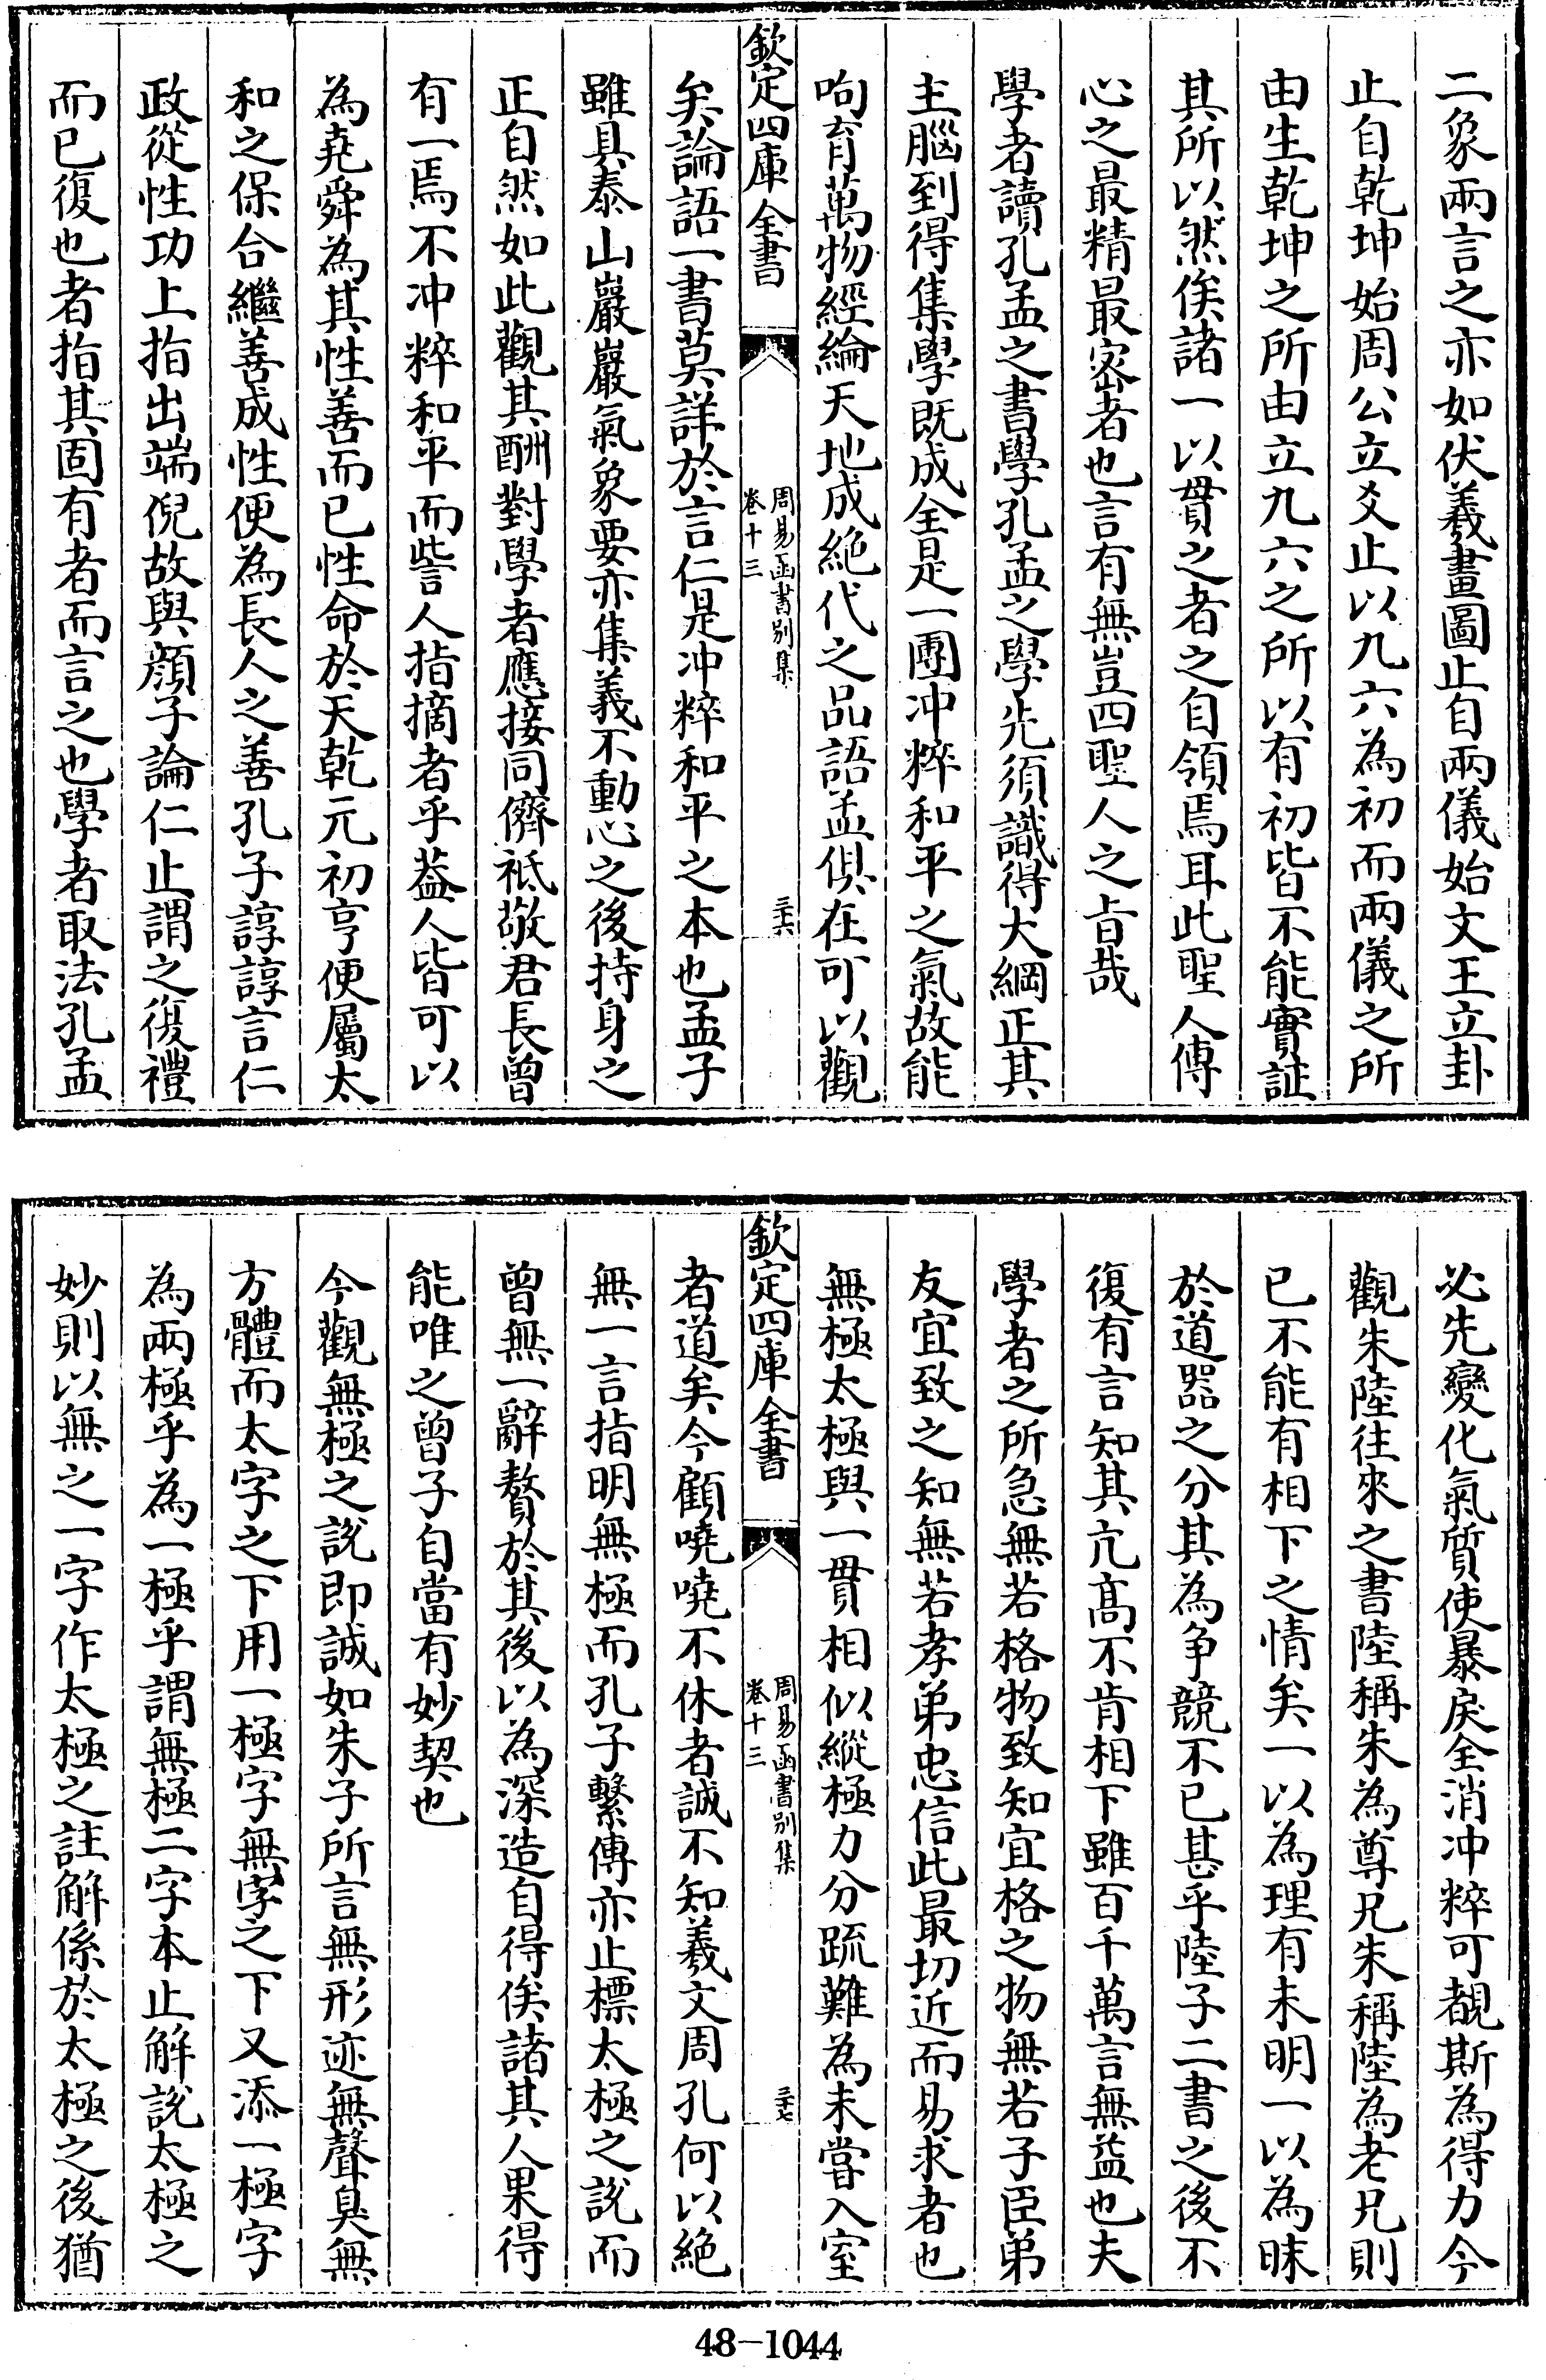 二象兩言之亦如伏羲畫圖止自兩儀始文王立卦
止自乾坤始周公立爻止以九六為初而兩儀之所
由生乾坤之所由立九六之所以有初皆不能實証
其所以然俟諸一以貫之者之自領焉耳此聖人傳
心之最精最密者也言有無豈四聖人之旨哉
學者讀孔孟之書學孔孟之學先須識得大綱正其
主腦到得集學既成全是一團冲粹和平之氣故能
呴育萬物經綸天地成絶代之品語孟俱在可以觀
欽定四庫全書
周易函書别集
卷十三
三十六
矣論語一書莫詳於言仁是冲粹和平之本也孟子
雖具泰山巖巖氣象要亦集義不動心之後持身之
正自然如此觀其酬對學者應接同儕祗敬君長曾
有一焉不冲粹和平而訾人指摘者乎葢人皆可以
為堯舜為其性善而已性命於天乾元初亨便屬太
和之保合繼善成性便為長人之善孔子諄諄言仁
政從性功上指出端倪故與顔子論仁止謂之復禮
而已復也者指其固有者而言之也學者取法孔孟
必先變化氣質使暴戾全消冲粹可覩斯為得力今
觀朱陸往來之書陸稱朱為尊兄朱稱陸為老兄則
已不能有相下之情矣一以為理有未明一以為昧
於道器之分其為争競不已甚乎陸子二書之後不
復有言知其亢髙不肯相下雖百千萬言無益也夫
學者之所急無若格物致知宜格之物無若子臣弟
友宜致之知無若孝弟忠信此最切近而易求者也
無極太極與一貫相似縱極力分疏難為未嘗入室
欽定四庫全書
周易函書别集
卷十三
三十七
者道矣今顧嘵嘵不休者誠不知羲文周孔何以絶
無一言指明無極而孔子繫傳亦止標太極之說而
曾無一辭贅於其後以為深造自得俟諸其人果得
能唯之曾子自當有妙契也
今觀無極之說即誠如朱子所言無形迹無聲臭無
方體而太字之下用一極字無字之下又添一極字
為兩極乎為一極乎謂無極二字本止解說太極之
妙則以無之一字作太極之註解係於太極之後猶
48-1044